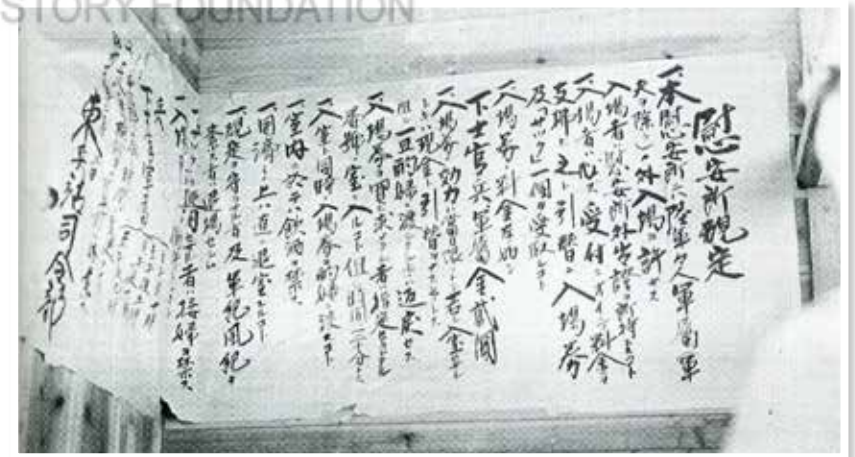 STORY FOUNDATION
慰安所規定
一、本慰安所ニハ陸軍々人軍属(軍
夫ヲ除ク)ノ外入場ヲ許サス
入場者ハ慰安所外出證ヲ所持スルコト
一、入場者ハ必ス受付ニオイテ料金ヲ
支拂ヒ之ト引替ニ入場券
及「サック」一個ヲ受取ルコト
一、入場券ノ料金左ノ如シ
下士官、兵、軍属金貳圓
一、入場券ノ効力ハ當日限リトシ若シ入室セサル
トキハ現金ト引替ヲナスモノトス
但シ一旦酌婦ニ渡シタルモノハ返戻セス
一、入場券ヲ買ヒ求メタル者ハ指定セラレタル
番號ノ室ニ入ルコト但シ時間ハ三十分トス
一、入室ト同時ニ入場券ヲ酌婦ニ渡スコト
一、室内ニ於テハ飲酒ヲ禁ス
一、用済ノ上ハ直ニ退室スルコト
一、規定ヲ守ラサル者及軍紀風紀ヲ
紊ス者ハ退場セシム
一、サックヲ使用セサル者ハ接婦ヲ禁ス
東兵站司令部